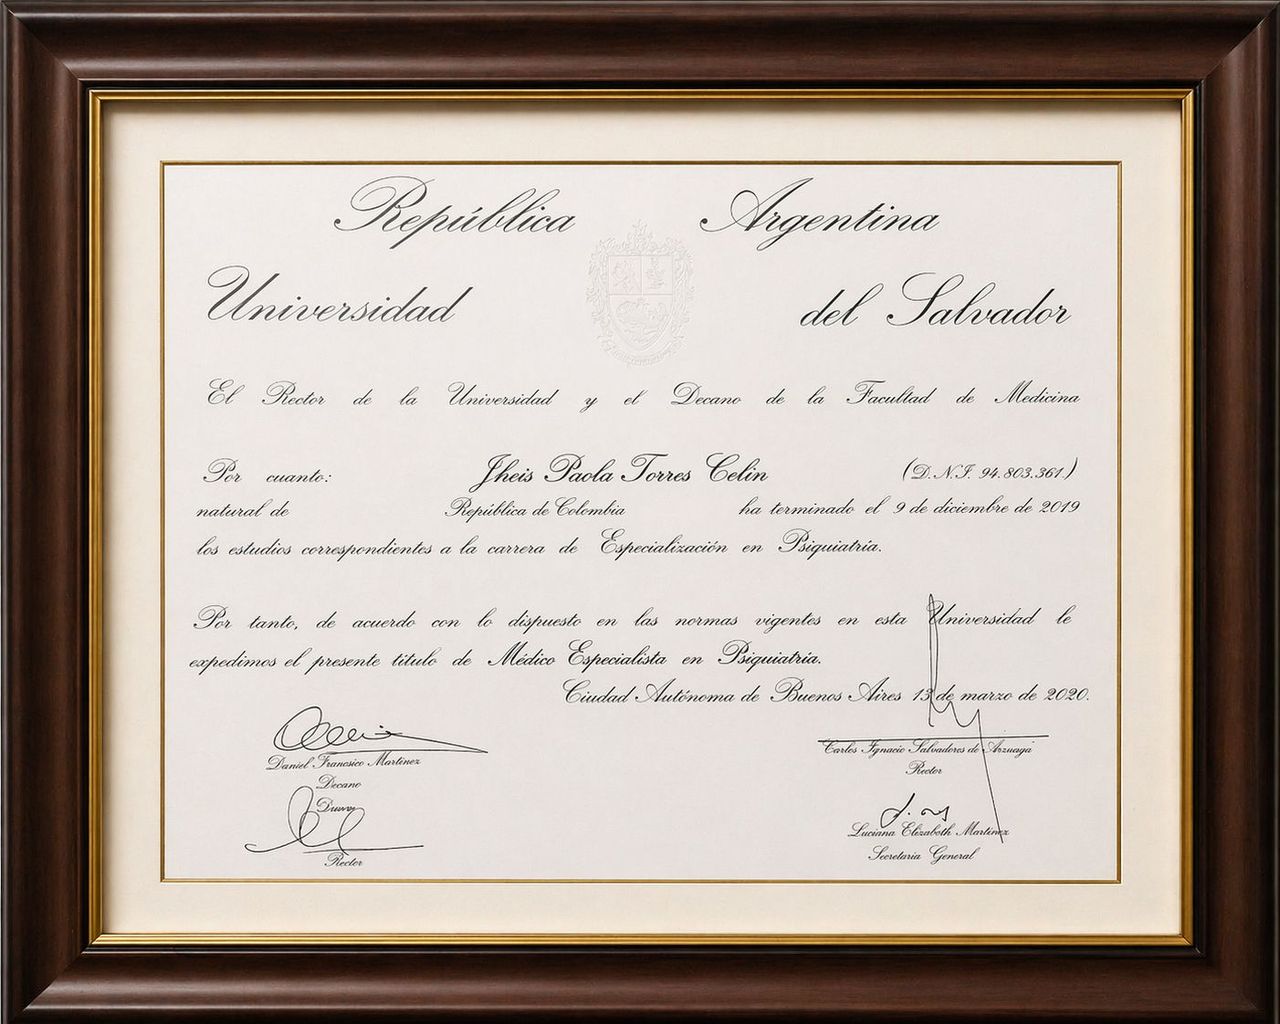 República Argentina
Universidad del Salvador
El Rector de la Universidad y el Decano de la Facultad de Medicina
Por cuanto: Jheis Paola Torres Celin (D.N.I. 94.803.361)
natural de República de Colombia ha terminado el 9 de diciembre de 2019
los estudios correspondientes a la carrera de Especialización en Psiquiatría.
Por tanto, de acuerdo con lo dispuesto en las normas vigentes en esta Universidad le
expedimos el presente título de Médico Especialista en Psiquiatría.
Ciudad Autónoma de Buenos Aires 13 de marzo de 2020.
Daniel Francisco Martinez
Decano
Rector
Carlos Ignacio Salvadores de Arzuaga
Rector
Luciana Elizabeth Martinez
Secretaria General